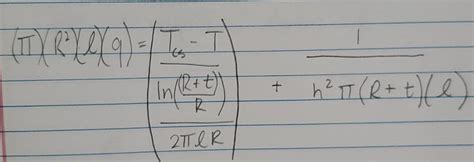 (π)(R²)(l)(q) = ( (T_cs - T) / ( ln((R+t)/R) / 2πlR ) ) + 1 / (h2π(R+t)(l))